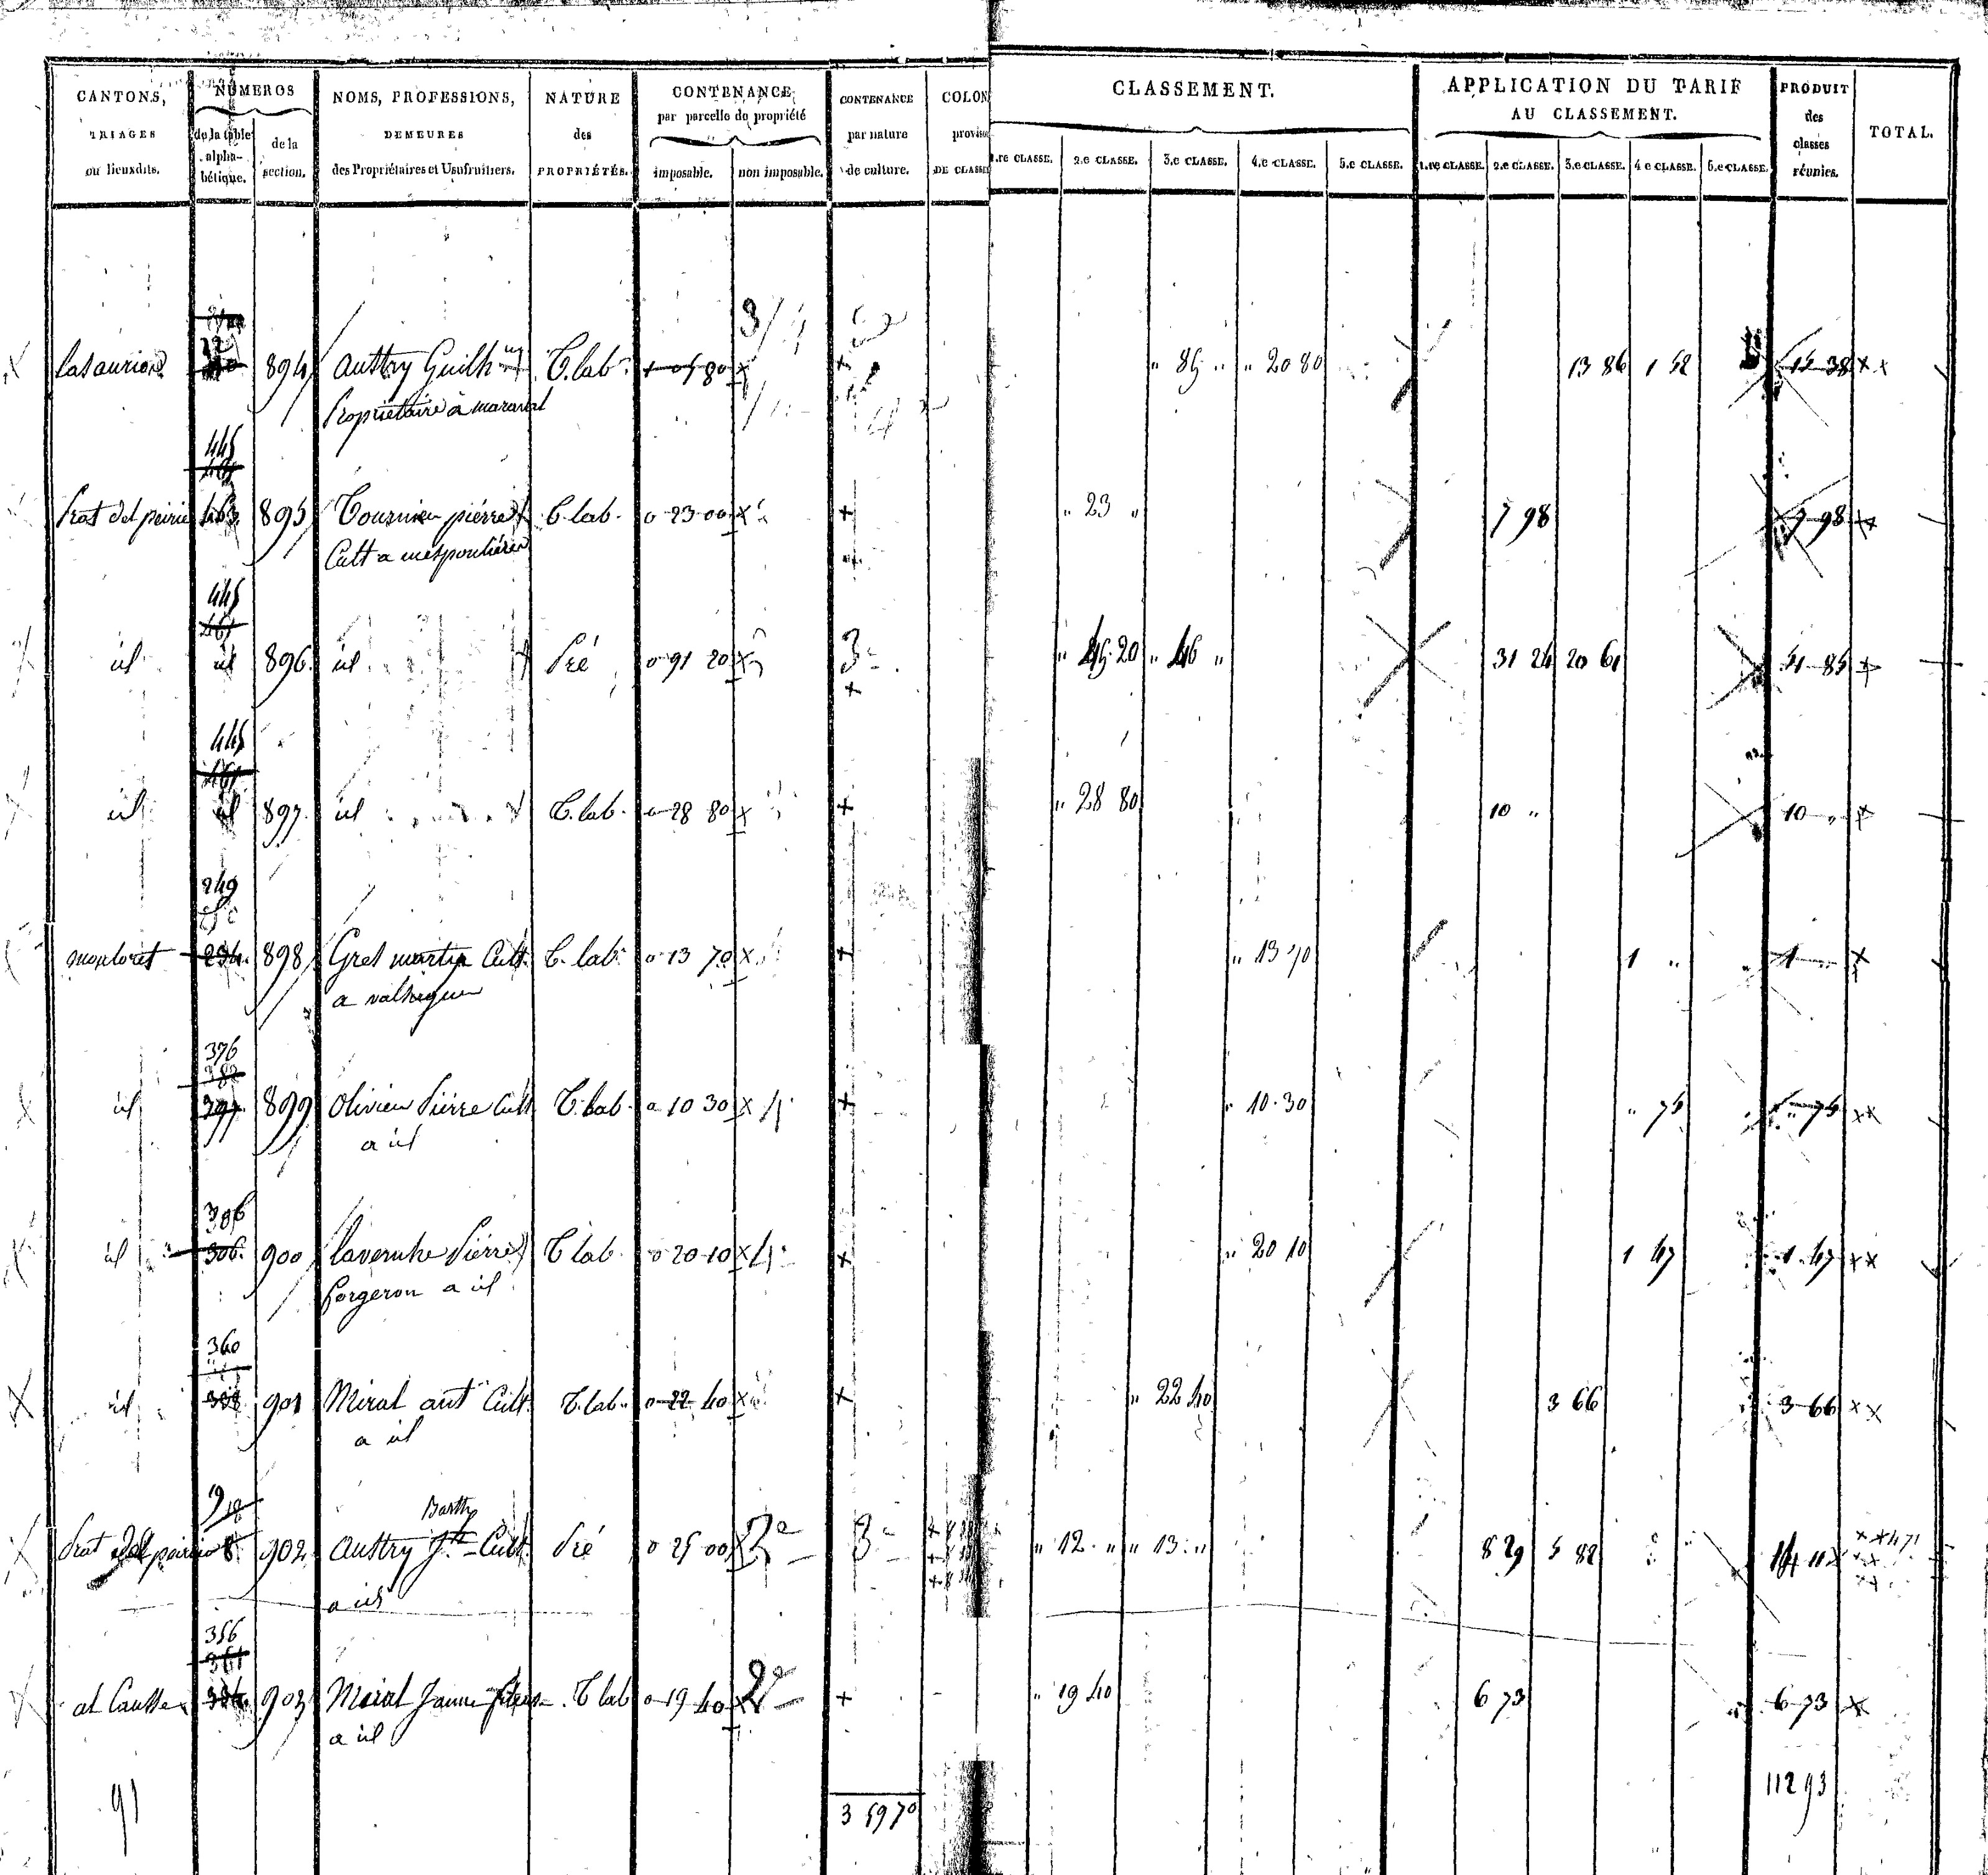 CANTONS, TRIAGES ou lieuxdits. NUMEROS de la table alpha-bétique. de la section. NOMS, PROFESSIONS, DEMEURES des Propriétaires et Usufruitiers. NATURE des PROPRIÉTÉS. CONTENANCE par parcelle de propriété imposable. non imposable. CONTENANCE par nature de culture. COLON proviso DE CLASSE CLASSEMENT. 1.re CLASSE. 2.e CLASSE. 3.e CLASSE. 4.e CLASSE. 5.e CLASSE. APPLICATION DU TARIF AU CLASSEMENT. 1.re CLASSE. 2.e CLASSE. 3.e CLASSE. 4.e CLASSE. 5.e CLASSE. PRODUIT des classes réunies. TOTAL.
22
894 Austry Guilh.me T. lab. 1 05 80 " 85 " " 20 80 13 86 1 52 15 38
Propriétaire à maraval
445
Prat del peirie 463 895 Tournier pierre T. lab. 0 23 00 " 23 " 7 98 7 98
Cult a
445
id id 896 id Pré 0 91 20 3 " 45 20 " 46 " 31 24 20 61 51 85
445
id id 897 id T. lab. 0 28 80 " 28 80 10 " 10 "
249
254 898 Gres martin Cult. T. lab. 0 13 70 " 13 70 1 " 1 "
a
376
382
id 397 899 Olivier Pierre Cult T. lab. 0 10 30 " 10 30 " 75 " 75
a id
306
id 306 900 Pierre T lab. 0 20 10 " 20 10 1 47 1 47
forgeron a id
360
id 901 Miral ant. Cult. T. lab. 0 22 40 " 22 40 3 66 3 66
a id
19
Barth.
Prat del 8 902 Austry Cult. Pré 0 25 00 2e 3 " 12 " " 13 " 8 29 5 82 14 11
a id
356
361
al Causse 903 Miral T lab 0 19 40 2e " 19 40 6 73 6 73
a id
91 3 59 70 112 93